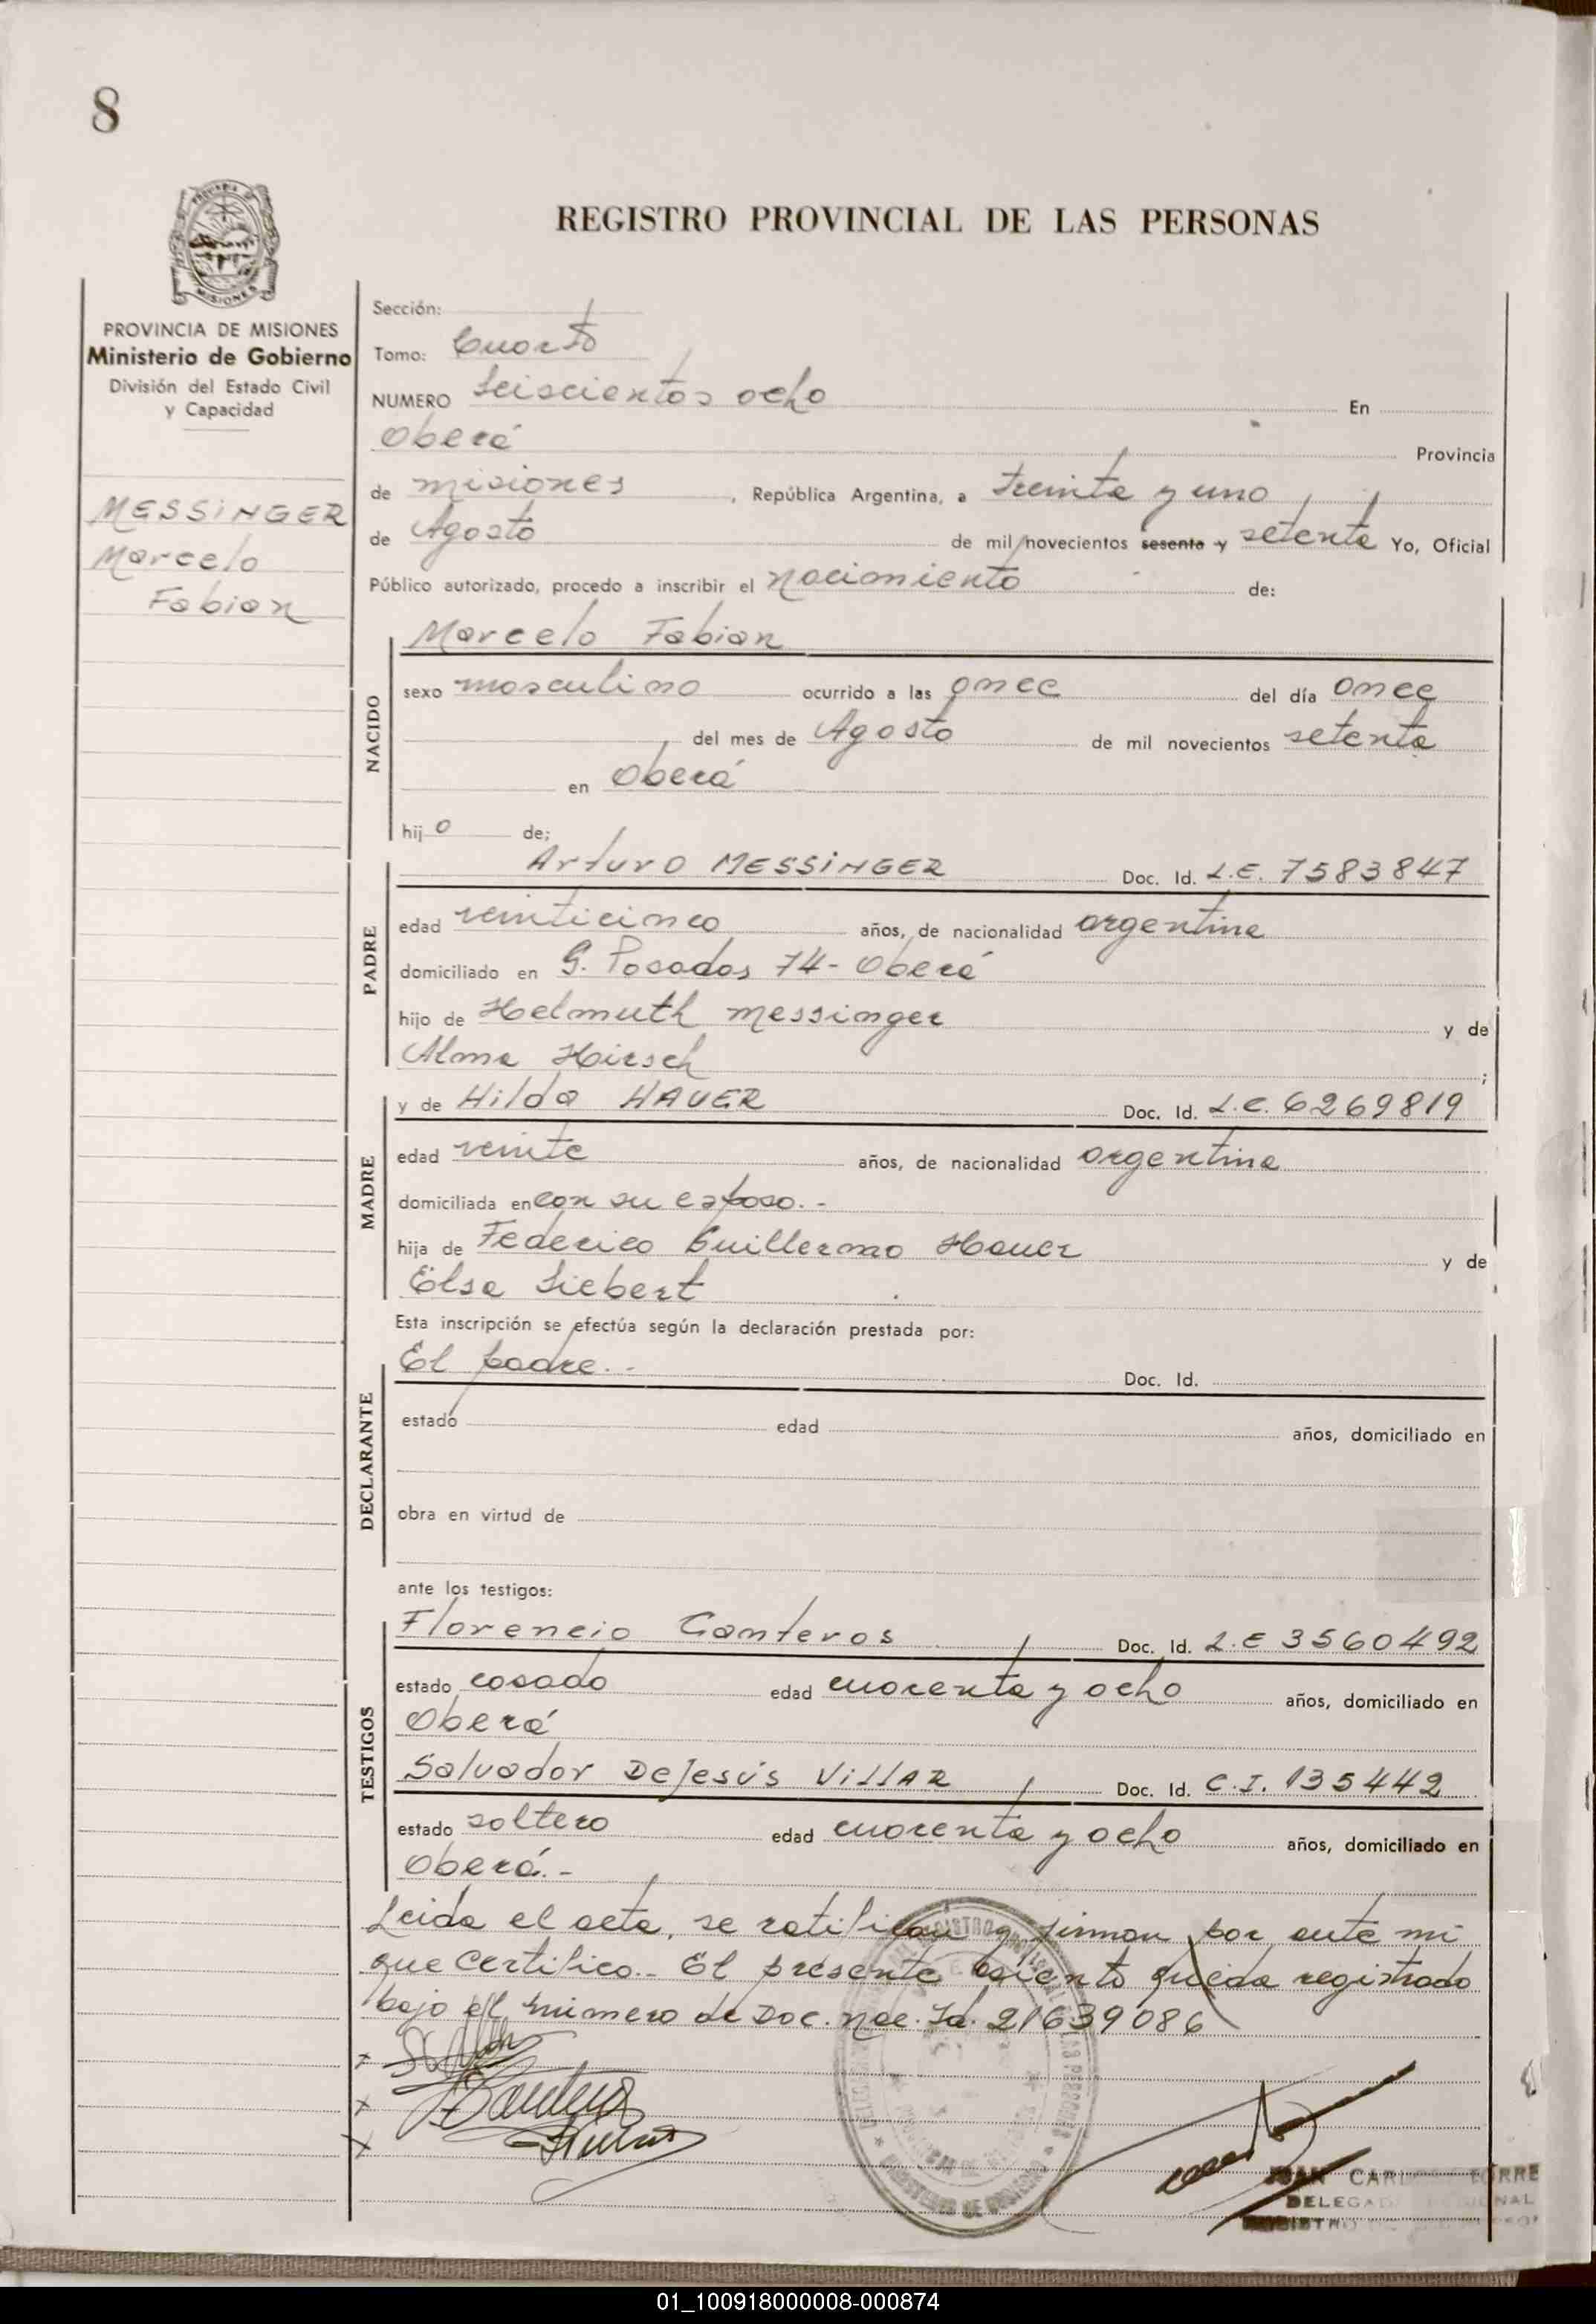 8
REGISTRO PROVINCIAL DE LAS PERSONAS
MISIONES
PROVINCIA DE MISIONES
Ministerio de Gobierno
División del Estado Civil
y Capacidad
MESSINGER
Marcelo
Fabian
Sección:
Tomo: Cuarto
NUMERO Seiscientos ocho En
Oberá Provincia
de misiones, República Argentina, a treinta y uno
de Agosto de mil novecientos sesenta y setenta Yo, Oficial
Público autorizado, procedo a inscribir el nacimiento de:
Marcelo Fabian
NACIDO
sexo masculino ocurrido a las once del día once
del mes de Agosto de mil novecientos setenta
en Oberá
hijo de:
Arturo MESSINGER Doc. Id. L.E. 7583847
PADRE
edad veinticinco años, de nacionalidad argentina
domiciliado en G. Posadas 74- Oberá
hijo de Helmuth Messinger y de
Alma Hirsch;
y de Hilda HAUER Doc. Id. L.C. 6269819
MADRE
edad veinte años, de nacionalidad argentina
domiciliada en con su esposo.-
hija de Federico Guillermo Hauer y de
Elsa Siebert
Esta inscripción se efectúa según la declaración prestada por:
El padre.- Doc. Id.
DECLARANTE
estado edad años, domiciliado en
obra en virtud de
ante los testigos:
Florencio Canteros Doc. Id. L.E 3560492
TESTIGOS
estado casado edad cuarenta y ocho años, domiciliado en
Oberá
Salvador DeJesús VillAR Doc. Id. C.I. 135442
estado soltero edad cuarenta y ocho años, domiciliado en
Oberá.-
Leida el acta, se ratifican y firman por ante mi
que certifico.- El presente asiento queda registrado
bajo el número de Doc. nac. Id. 21639086
JUAN CARLOS TORRE
DELEGADO REGIONAL
REGISTRO
01_100918000008-000874